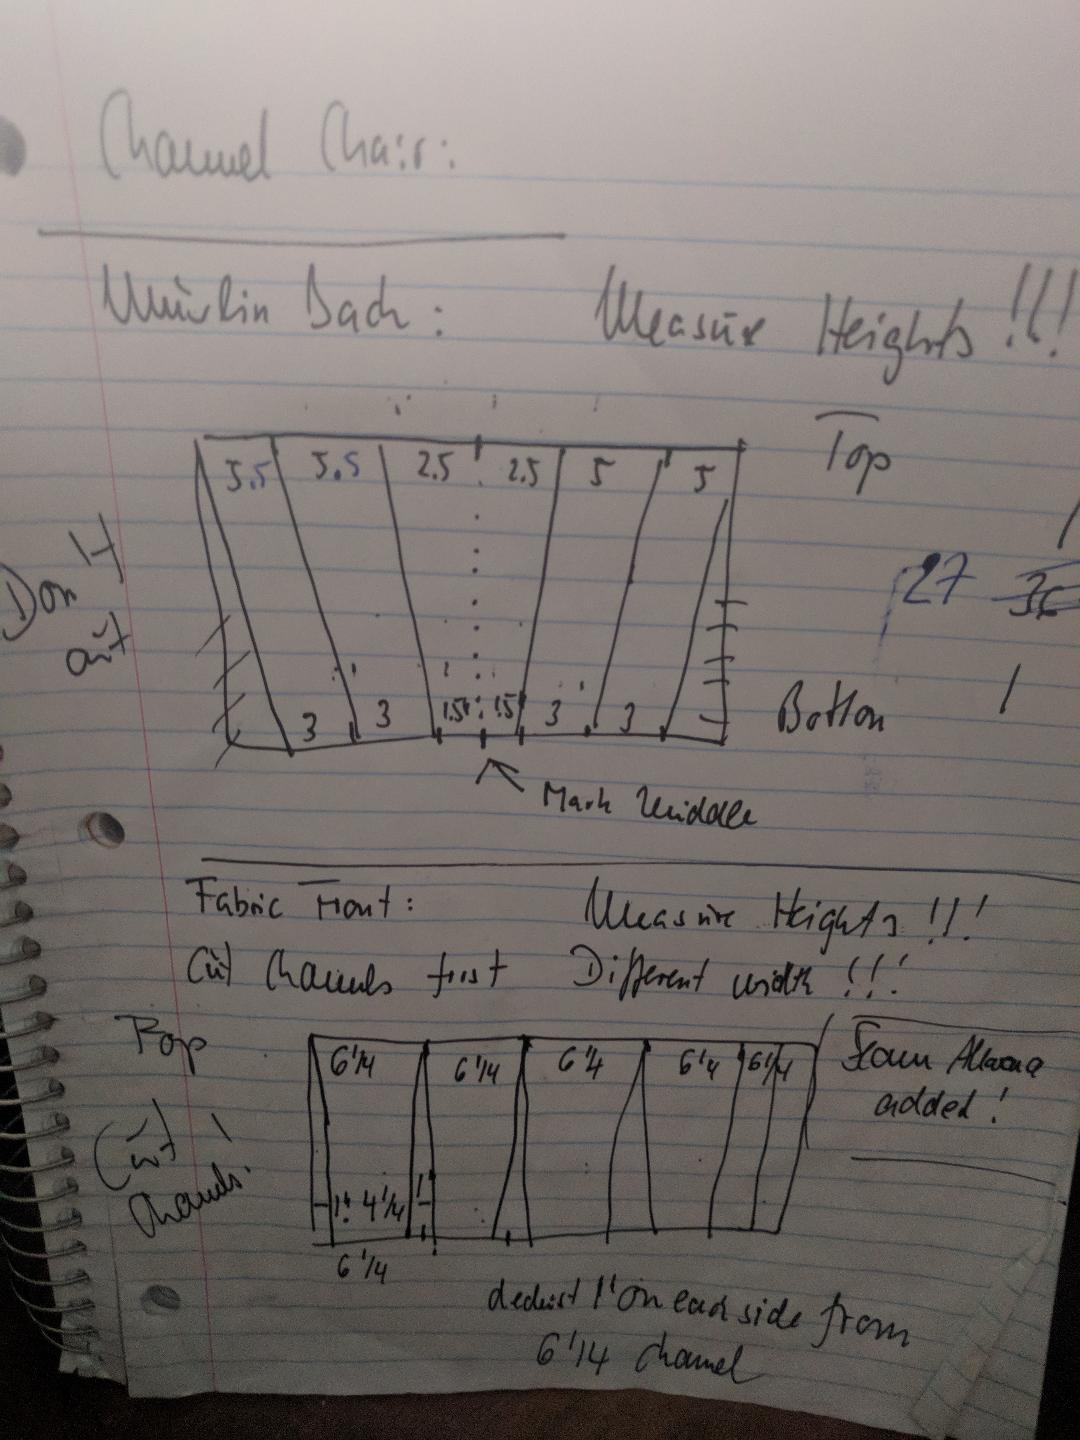 Channel Chair:
Muslin Back: Measure Heights!!!
Top
5.5 5.5 2.5 2.5 5 5
Don't
cut
27
3 3 1.5 1.5 3 3
Bottom
Mark Middle
Fabric Front: Measure Heights!!!
Cut Channels first Different width!!!
Top
6 1/4 6 1/4 6 1/4 6 1/4 6 1/4
Seam Allowance
added!
Cut
Channels!
1" 4 1/4 1"
6 1/4
deduct 1" on each side from
6 1/4 channel